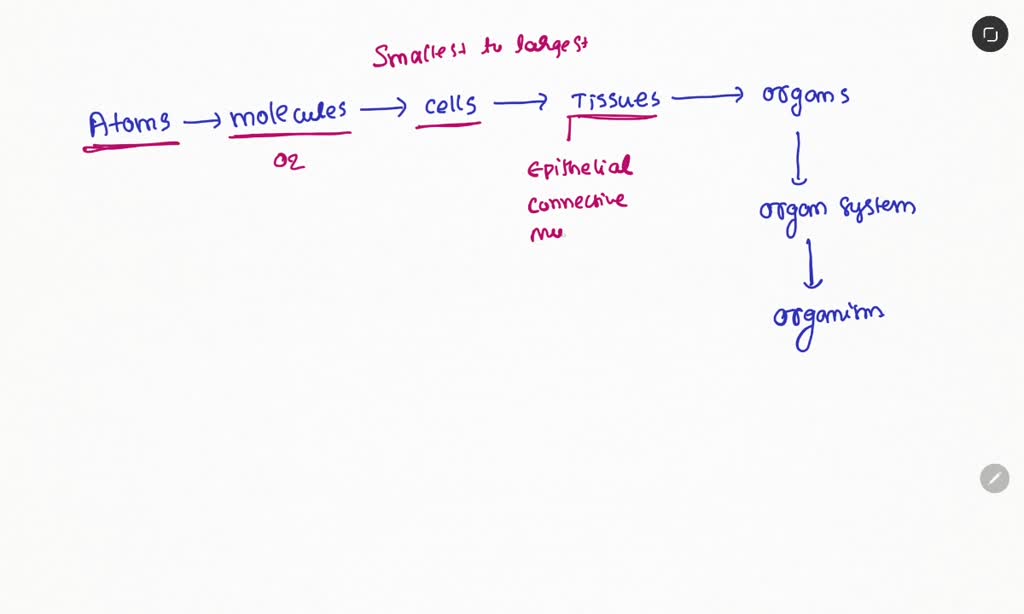 Smallest to largest
Atoms → molecules → cells → Tissues → organs
O2
Epithelial
connective
mu
organ system
organism